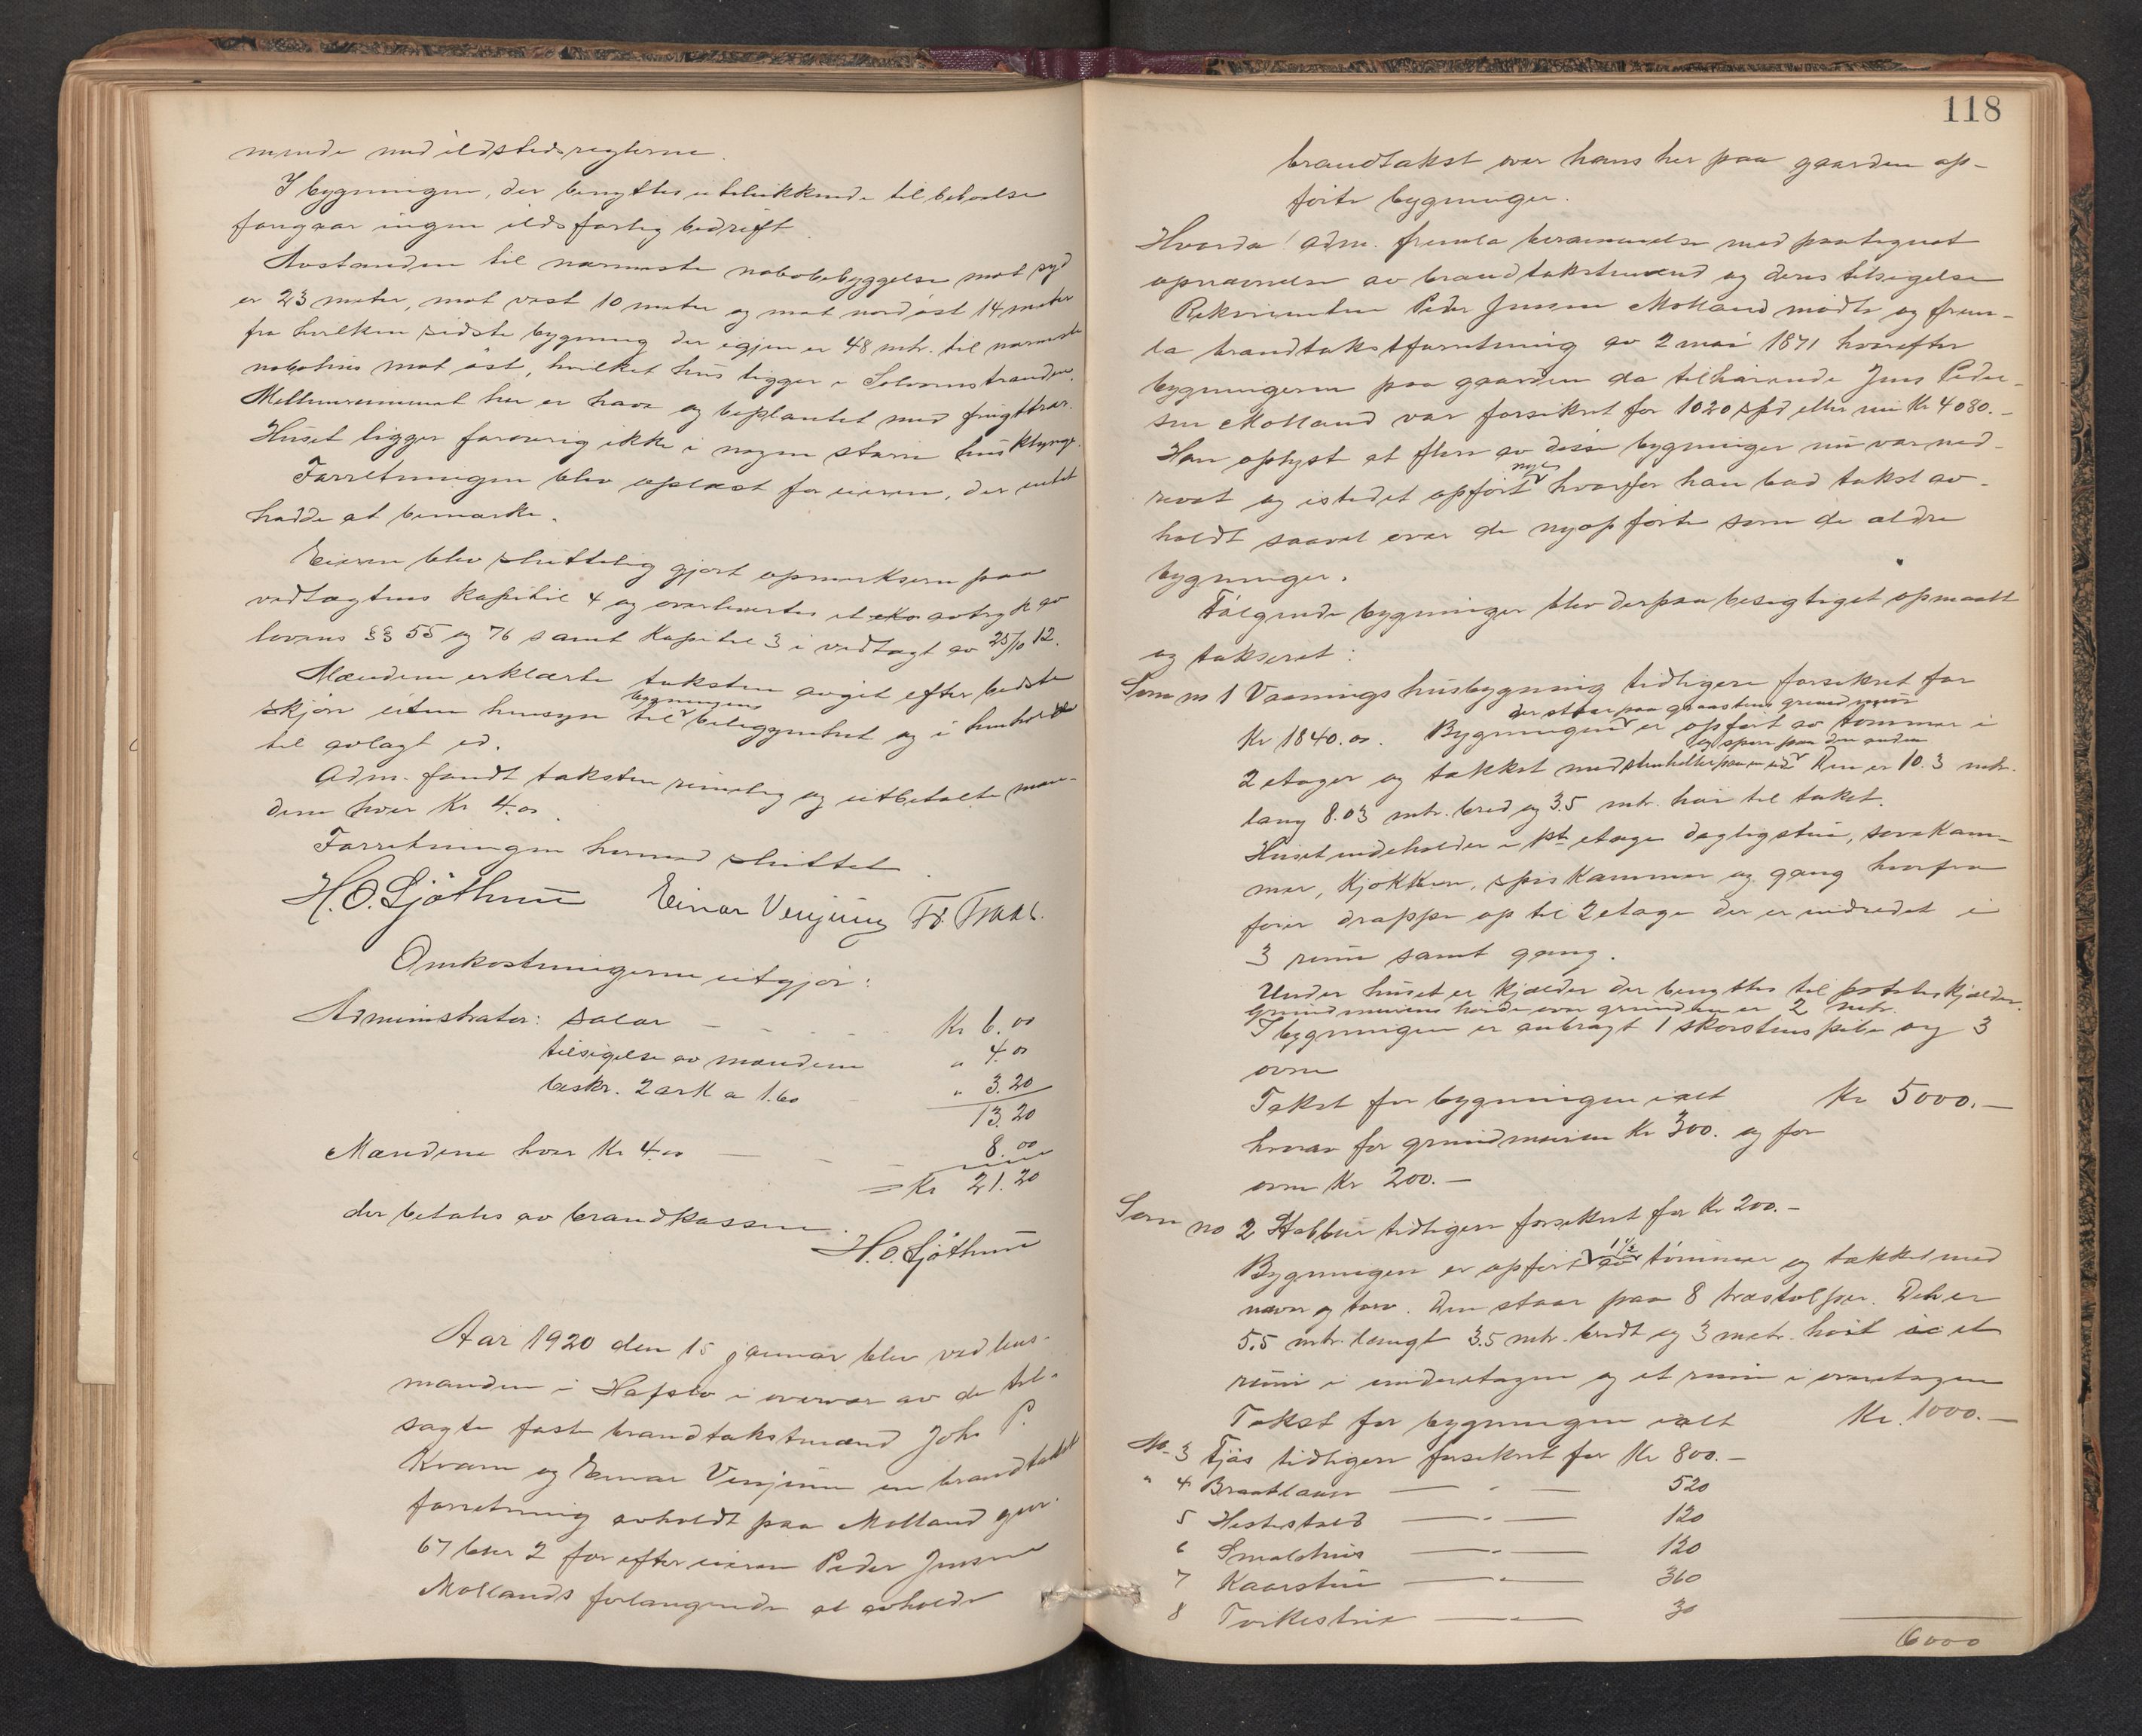 mende med ildstedsreglerne.
I bygningen, der benyttes utelukkende til beboelse
foregaar ingen ildsfarlig bedrift.
Avstanden til nærmeste nabobebyggelse mot syd
er 23 meter, mot vest 10 meter og mot nordøst 14 meter
fra hvilken sidste bygning der igjen er 48 mtr. til nærmeste
nabohus mot øst, hvilket hus ligger i Solvornstranden.
Mellemrummet her er have og beplantet med frugttrær.
Huset ligger forøvrig ikke i nogen større husklynge.
Forretningen blev oplæst for eieren, der intet
hadde at bemerke.
Eieren blev skriftlig gjort opmerksom paa
vedtægtens kapitel 4 og overlevertes et avtryk av
lovens §§ 55 og 76 samt kapitel 3 i vedtægt av 25/10 12.
Mændene erklærte taksten avgit efter bedste
bygningens
skjøn uten hensyn til beliggenhet og i henhold
til avlagt ed.
Adm. fandt taksten rimelig og utbetalte mæn-
dene hver Kr 4.00.
Forretningen hermed sluttet.
H. O. Sjøthun Einar Venjum Fr. Traae.
Omkostningerne utgjør:
Administrator: salær - - - Kr 6.00
tilsigelse av mændene " 4.00
beskr. 2 ark a 1.60 - " 3.20
13.20
Mændene hver Kr 4.00 - - - 8.00
= Kr 21.20
der betales av brandkassen.
H. O. Sjøthun
Aar 1920 den 15 januar blev ved lens-
manden i Hafslo i overvær av de til-
sagte faste brandtakstmænd Johs P.
Kvam og Einar Venjum en brandtakst
forretning avholdt paa Molland gnr.
67 bnr 2 for efter eieren Peder Jensen
Mollands forlangende at avholde
118
brandtakst over hans her paa gaarden op-
førte bygninger.
Hvorda! Adm. fremla berammelse med paategnet
opnævnelse av brandtakstmænd og deres tilsigelse
Rekvirenten Peder Jensen Molland møtte og frem-
la brandtakstforretning av 2 mai 1871 hvorefter
bygningerne paa gaarden da tilhørende Jens Peder-
sen Molland var forsikret for 1020 spd eller nu Kr 4080.-
Han oplyste at flere av disse bygninger nu var ned-
nye
revet og istedet opført hvorfor han bad takst av-
holdt saavel over de nyopførte som de ældre
bygninger.
Følgende bygninger blev derpaa besigtiget opmaalt
og taksert:
Som no 1 Vaaningshusbygning tidligere forsikret for
der staar paa graastens grundmur
Kr 1840.00. Bygningen er opført av tømmer i
og spon paa den anden
2 etager og tækket med stenheller paa en side Den er 10.3 mtr.
lang 8.03 mtr. bred og 3.5 mtr. høi til taket.
Huset indeholder i 1ste etage dagligstue, sovekam-
mer, kjøkken, spiskammer og gang hvorfra
fører trappe op til 2 etage der er indredet i
3 rum samt gang.
Under huset er kjælder der benyttes til potetkjælder.
Grundmurens høide over grunden er 2 mtr.
I bygningen er anbragt 1 skorstenspibe og 3
ovne
Takst for bygningen ialt Kr 5000.-
hvorav for grundmuren Kr 300. og for
ovne Kr 200.-
Som no 2 Stabbur tidligere forsikret for Kr 200.-
1 1/2
Bygningen er opført av tømmer og tækket med
næver og torv. Den staar paa 8 træstolper. Det er
5.5 mtr. langt 3.5 mtr. bredt og 3 metr. høit et
rum i underetagen og et rum i overetagen
Takst for bygningen ialt Kr. 1000.-
No. 3 Fjøs tidligere forsikret for Kr 800.-
" 4 Braatlaaven — " — 520
5 Hestestald — " — 120
6 Smalehus — " — 120
7 Kaarstue — " — 360
8 Torkestue — " — 30
6000